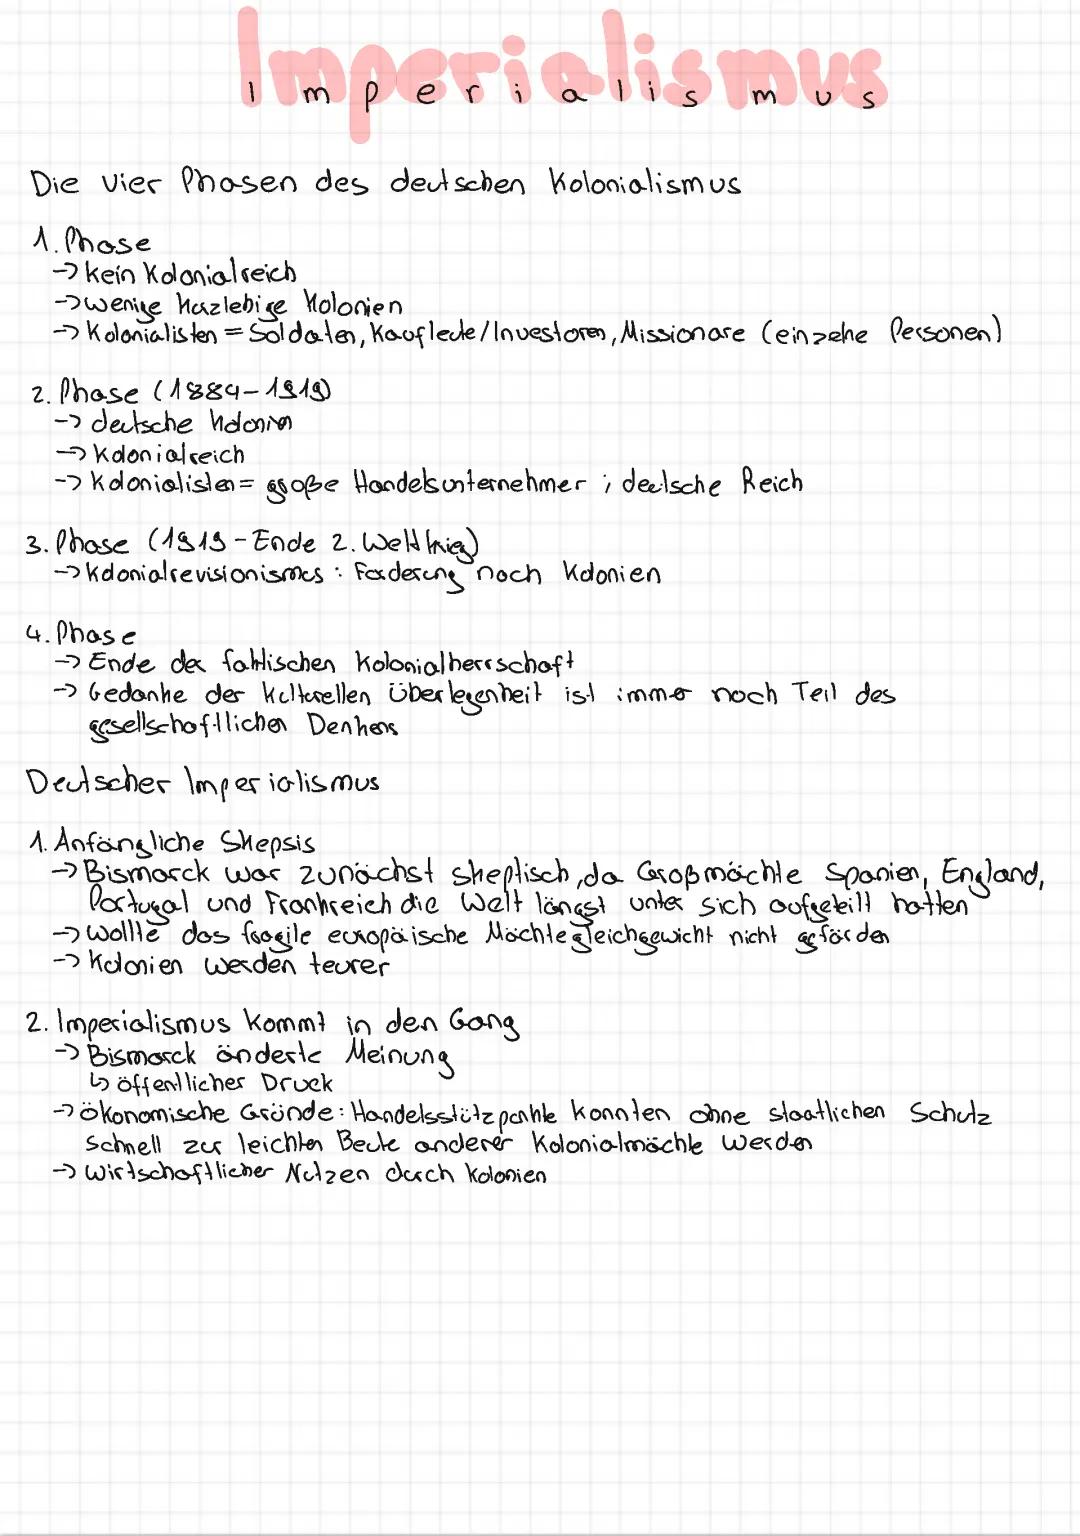 Imperialismus
Die vier Phasen des deutschen Kolonialismus
1. Phase
→ kein Kolonialreich
→ wenige kurzlebige Kolonien
→ Kolonialisten = Soldaten, Kaufleute/Investoren, Missionare (einzelne Personen)
2. Phase (1884-1919)
→ deutsche Kolonien
→ Kolonialreich
→ Kolonialisten = große Handelsunternehmer ; deutsche Reich
3. Phase (1919 - Ende 2. Weltkrieg)
→ Kolonialrevisionismus : Forderung nach Kolonien
4. Phase
→ Ende der faktischen Kolonialherrschaft
→ Gedanke der kulturellen Überlegenheit ist immer noch Teil des
gesellschaftlichen Denkens
Deutscher Imperialismus
1. Anfängliche Skepsis
→ Bismarck war zunächst skeptisch, da Großmächte Spanien, England,
Portugal und Frankreich die Welt längst unter sich aufgeteilt hatten
→ Wollte das fragile europäische Mächtegleichgewicht nicht gefärden
→ Kolonien werden teurer
2. Imperialismus kommt in den Gang
→ Bismarck änderte Meinung
↳ öffentlicher Druck
→ ökonomische Gründe: Handelsstützpunkte konnten ohne staatlichen Schutz
schnell zur leichten Beute anderer Kolonialmächte werden
→ Wirtschaftlicher Nutzen durch Kolonien